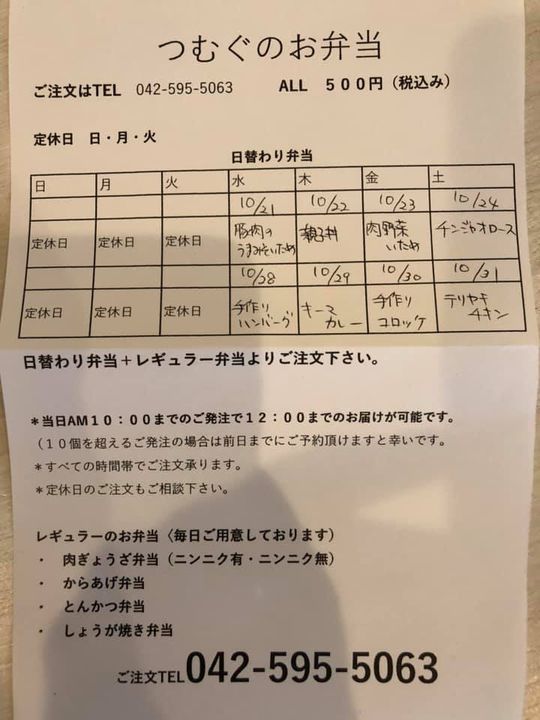 つむぐのお弁当
ご注文はTEL 042-595-5063 ALL 500円（税込み）
定休日 日・月・火
日替わり弁当
日 月 火 水 木 金 土
10/21 10/22 10/23 10/24
定休日 定休日 定休日 豚肉のうまみそいため 親子丼 肉野菜いため チンジャオロース
10/28 10/29 10/30 10/31
定休日 定休日 定休日 手作りハンバーグ キーマカレー 手作りコロッケ テリヤキチキン
日替わり弁当＋レギュラー弁当よりご注文下さい。
＊当日AM10：00までのご発注で12：00までのお届けが可能です。
（10個を超えるご発注の場合は前日までにご予約頂けますと幸いです。
＊すべての時間帯でご注文承ります。
＊定休日のご注文もご相談下さい。
レギュラーのお弁当（毎日ご用意しております）
・ 肉ぎょうざ弁当（ニンニク有・ニンニク無）
・ からあげ弁当
・ とんかつ弁当
・ しょうが焼き弁当
ご注文TEL042-595-5063